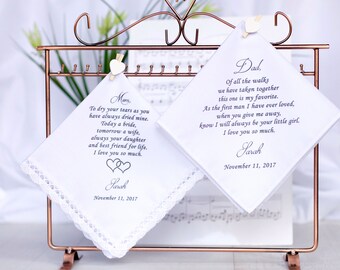 Mom,
To dry your tears as you
have always dried mine.
Today a bride,
tomorrow a wife,
always your daughter
and best friend for life.
I love you so much.
Sarah
November 11, 2017
Dad,
Of all the walks
we have taken together
this one is my favorite.
As the first man I have ever loved,
when you give me away,
know I will always be your little girl.
I love you so much.
Sarah
November 11, 2017